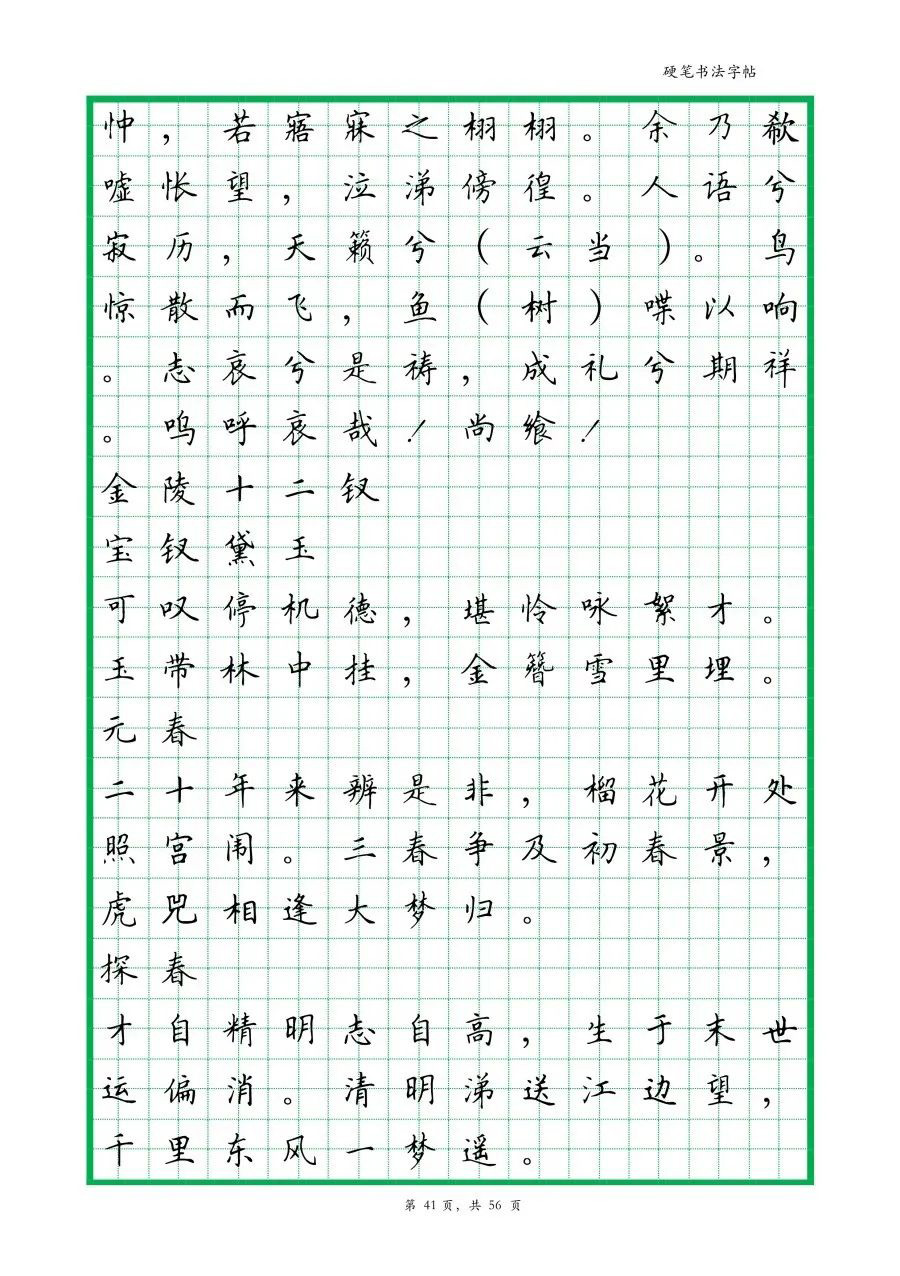 硬笔书法字帖
忡，若寤寐之栩栩。余乃欷
嘘怅望，泣涕傍徨。人语兮
寂历，天籁兮（云当）。鸟
惊散而飞，鱼（树）喋以响
。志哀兮是祷，成礼兮期祥
。呜呼哀哉！尚飨！
金陵十二钗
宝钗黛玉
可叹停机德，堪怜咏絮才。
玉带林中挂，金簪雪里埋。
元春
二十年来辨是非，榴花开处
照宫闱。三春争及初春景，
虎兕相逢大梦归。
探春
才自精明志自高，生于末世
运偏消。清明涕送江边望，
千里东风一梦遥。
第 41 页，共 56 页